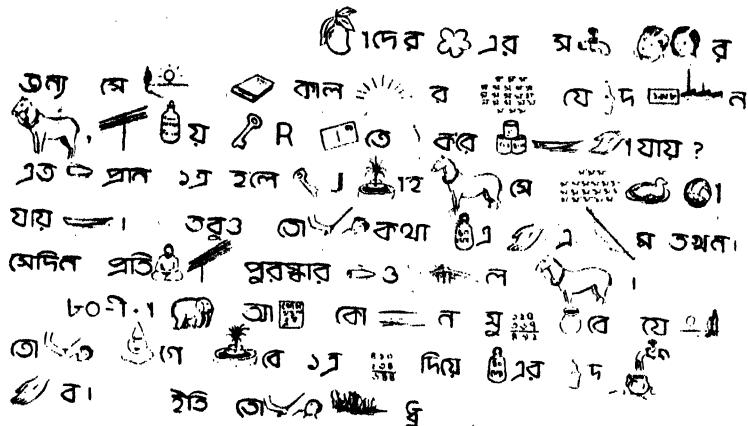 াদের এর স র
জন্য সে কাল র যে দ ন
, য় R তে করে া যায় ?
এত প্রান ১এ হলে J হি সে া
যায় । তবুও তো কথা এ এ ম তখন।
সেদিন প্রতি া পুরস্কার ও ল ।
৮০-নী-। আ কো ন মু বে যে
তো গে বে ১এ দিয়ে এর দ
ব। ইতি তো ধু